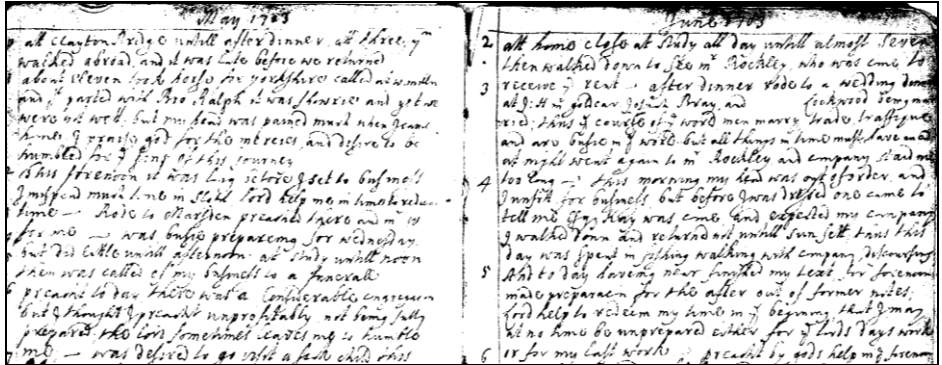 May 1703
att Clayton Bridge untill after dinner, att three, yn
walked abroad, and it was late before we returned
about eleven took horse for yorkshire called at
and yn parted with Bro Ralph it was showrie and yet we
were not wet, but my head was pained much when I came
home, I praise god for the mercies, and desire to be
humbled for ye sins of this journey
this forenoon it was long before I set to busines
I mispend much time in sloth lord help me in time to redeem
time — Rode to Marsden preached there and mr
for me — was busie prepareing for wednesday
but did little untill afternoon at study untill noon
then was called of my busines to a funerall
6 preacht to day, there was a Considerable congregation
but I thought I preacht unprofitably, not being fully
prepared, the lord sometimes leaves me to humble
7 me, — was desired to go visit a sick child this
June 1703
2 att home close at study all day untill almost seven
then walked down to see mr Rockley, who was come to
3 receive ye rent — after dinner rode to a wedding dinner
at J: H in golcar Josiah Bray, and Lockwood being mar
ried; thus ye course of ye world men marry, trade, traffique,
and are busie in ye world but all things in time must have an end
at night went again to mr Rockley and company staid me
4 too long — this morning my head was out of order, and
I unfit for busines, but before I was dressed one came to
tell me Kay was come and expected my company
I walked down and returnd not untill sun sett thus this
day was spent in fishing walking with company, discoursing
5 And to day haveing near finished my text for forenoon
made preparacon for the after out of former notes,
lord help to redeem my time in ye begining that I may
at no time be unprepared either for ye lords days work
6 or for my last work preacht by gods help in ye forenoon